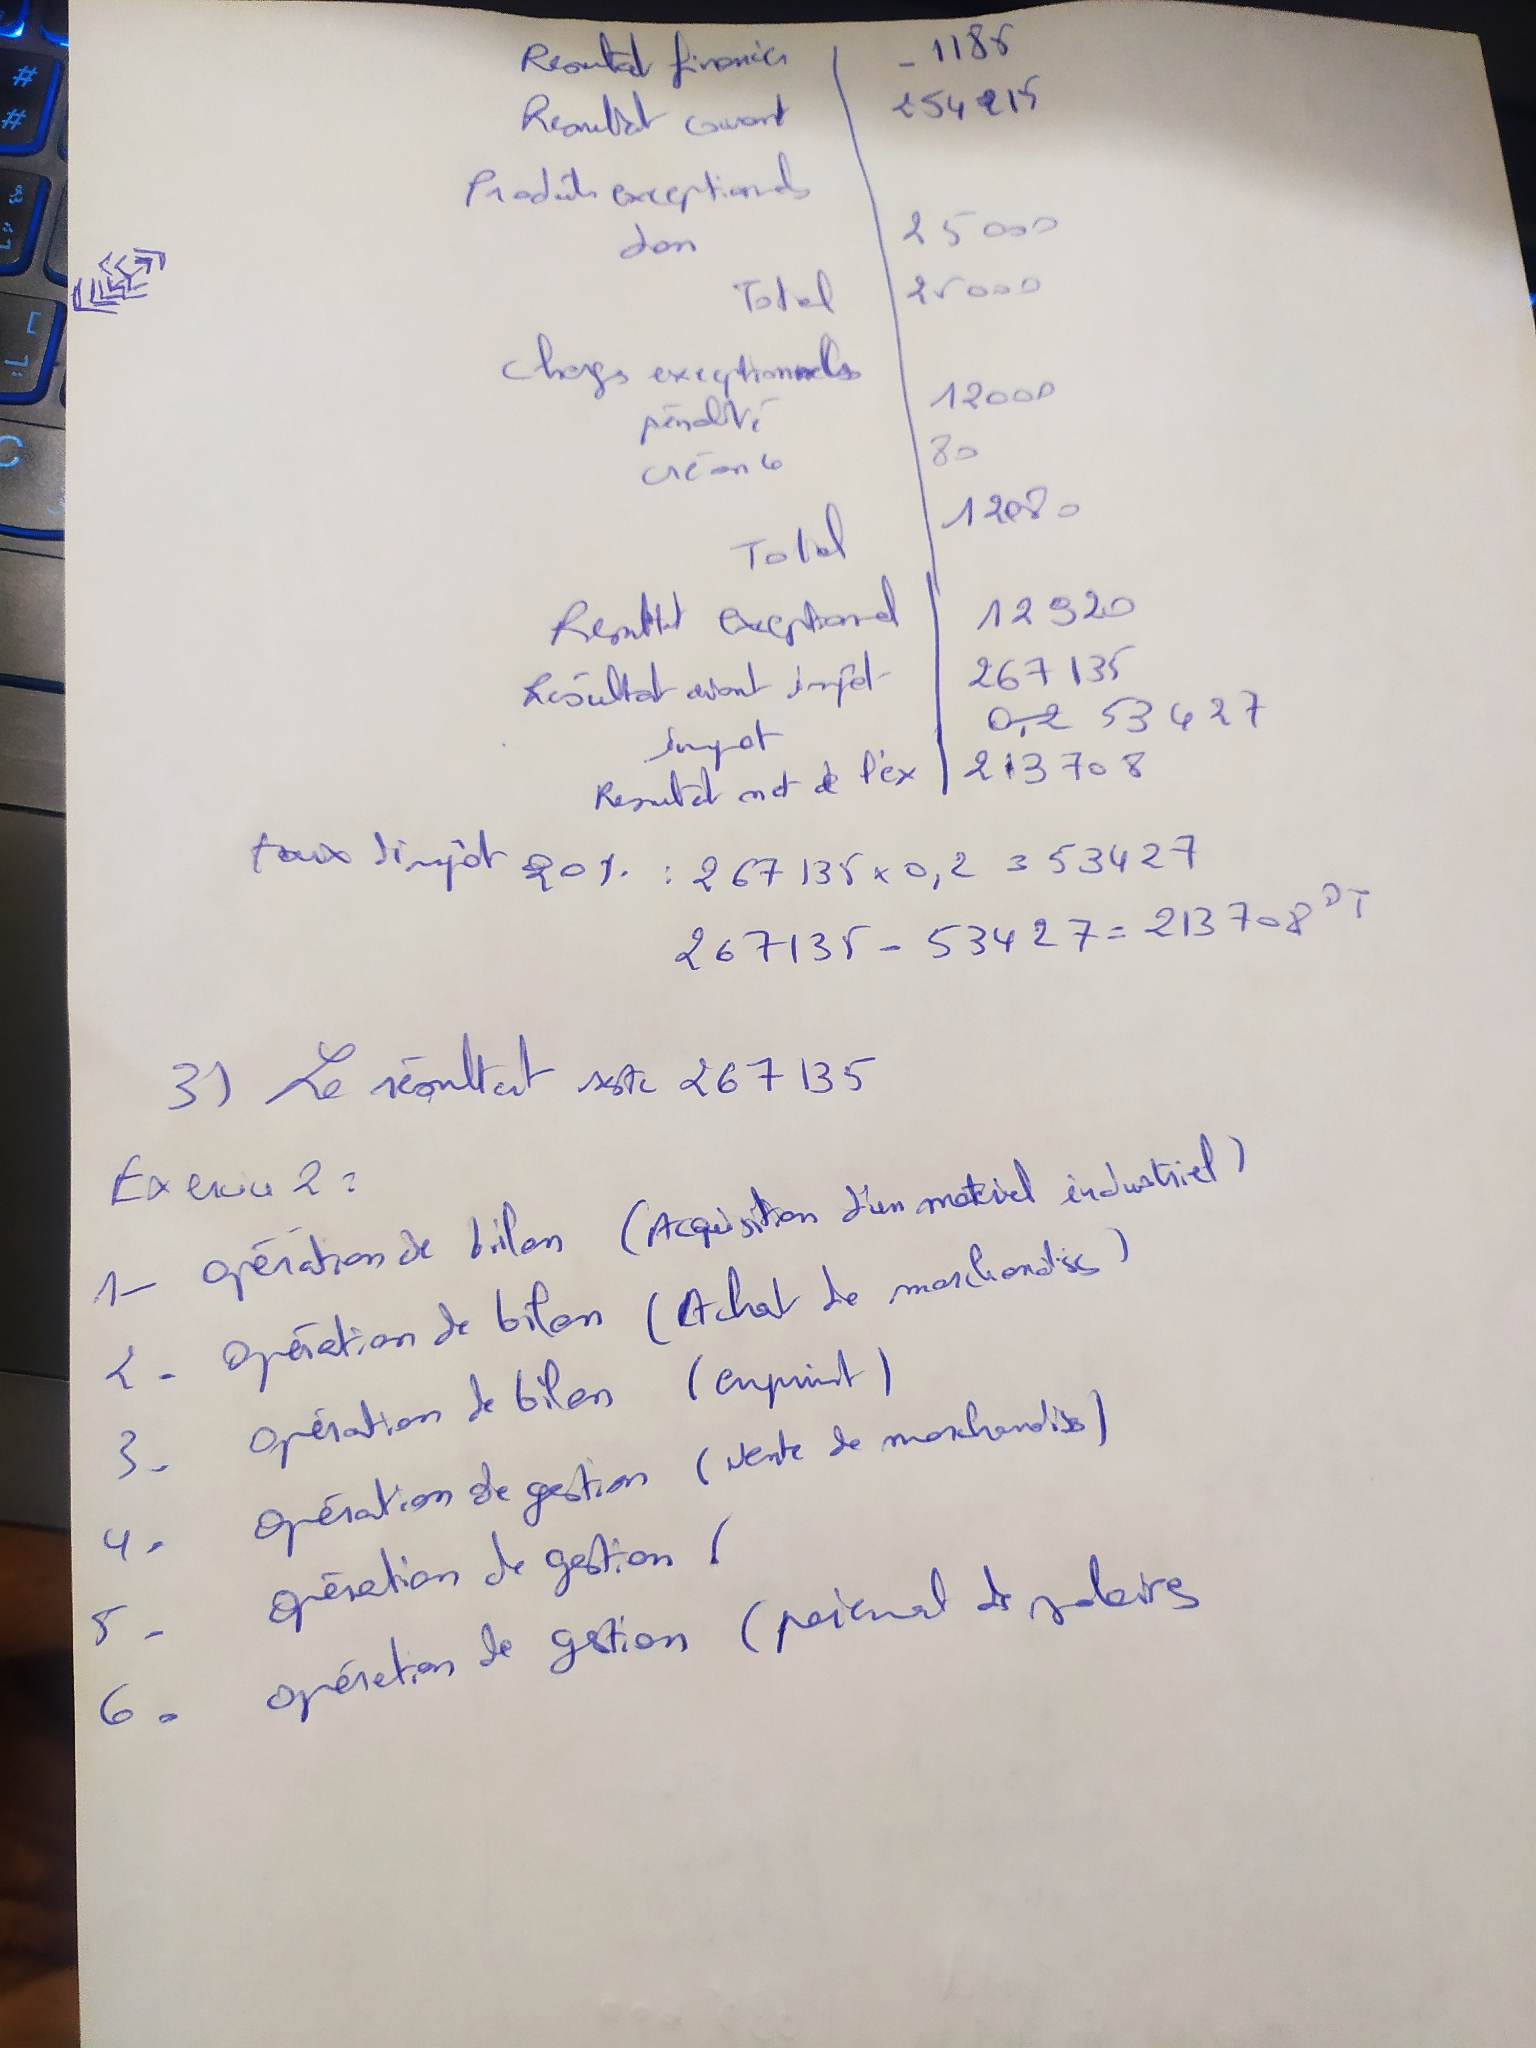 Resultat financier - 1185
Resultat courant 254 215
Produits exceptionnels
don 25 000
Total 25 000
charges exceptionnels
pénalité 12000
créance 80
Total 12080
Resultat exceptionnel 12 920
Résultat avant impôt 267 135
impot 0,2 53 427
Resultat net de l'ex 213 708
taux d'impôt 20%. : 267 135 x 0,2 = 53427
267135 - 53427 = 213708 DT
3) Le résultat reste 267135
Exercice 2 :
1- opération de bilan (Acquisition d'un matériel industriel)
2- opération de bilan (Achat de marchandises)
3- opération de bilan (emprunt)
4- opération de gestion (vente de marchandises)
5- opération de gestion (
6- opération de gestion (paiement de salaires